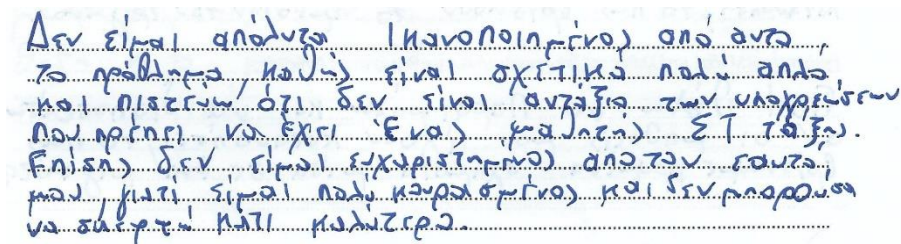 Δεν είμαι απόλυτα ικανοποιημένος από αυτο
το πρόβλημα, καθώς είναι σχετικά πολύ απλο
κα πιστεύω ότι δεν είναι αντάξιο των υποχρεώσεων
που πρέπει να έχει ένας μαθητής ΣΤ τάξης.
Επίσης δεν είμαι ευχαριστημένος απο τον εαυτό
μου, γιατί είμαι πολύ κουρασμένος και δεν μπορουσα
να σκεφτώ κατι καλύτερο.